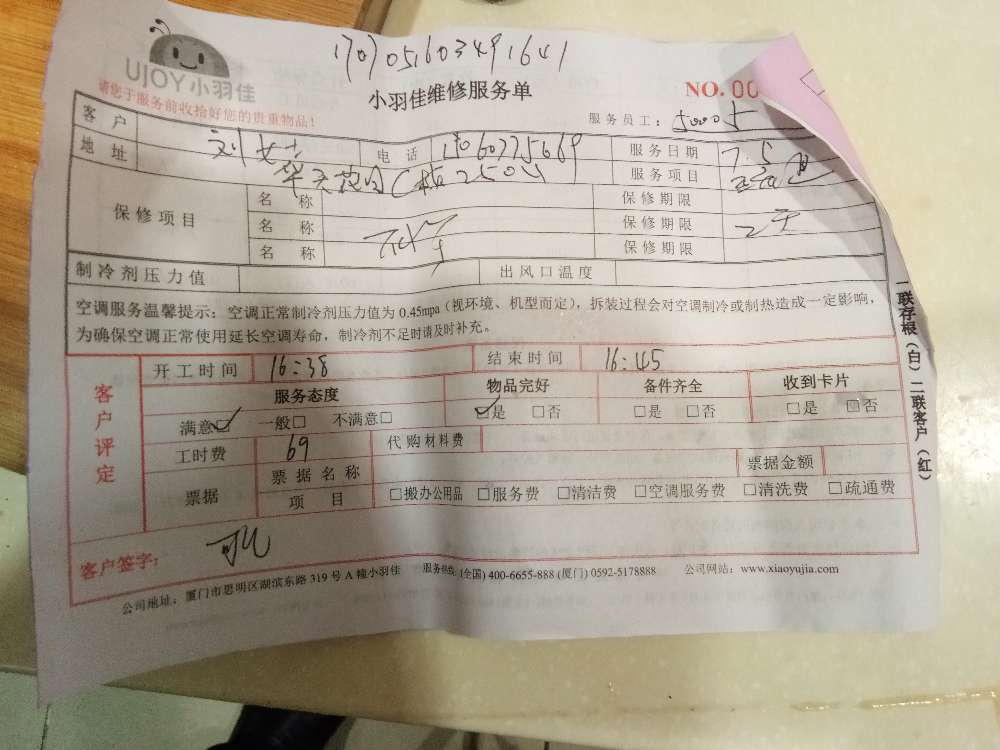 1707051603491641
UJOY小羽佳
小羽佳维修服务单
NO. 00
请您于服务前收拾好您的贵重物品!
服务员工: 50005
客户 刘女士 电话 服务日期 7.5
地址 服务项目
保修项目 名称 保修期限
名称 保修期限
名称 保修期限
制冷剂压力值 出风口温度
空调服务温馨提示: 空调正常制冷剂压力值为 0.45mpa (视环境、机型而定), 拆装过程会对空调制冷或制热造成一定影响,
为确保空调正常使用延长空调寿命, 制冷剂不足时请及时补充。
客户评定
开工时间 16:38 结束时间 16:45
服务态度 物品完好 备件齐全 收到卡片
满意☑ 一般□ 不满意□ ☑是 □否 □是 □否 □是 □否
工时费 69 代购材料费
票据 票据名称 票据金额
项目 □搬办公用品 □服务费 □清洁费 □空调服务费 □清洗费 □疏通费
客户签字:
公司地址: 厦门市思明区湖滨东路 319 号 A 幢小羽佳 服务热线: (全国) 400-6655-888 (厦门) 0592-5178888 公司网站: www.xiaoyujia.com
一联存根(白) 二联客户(红)